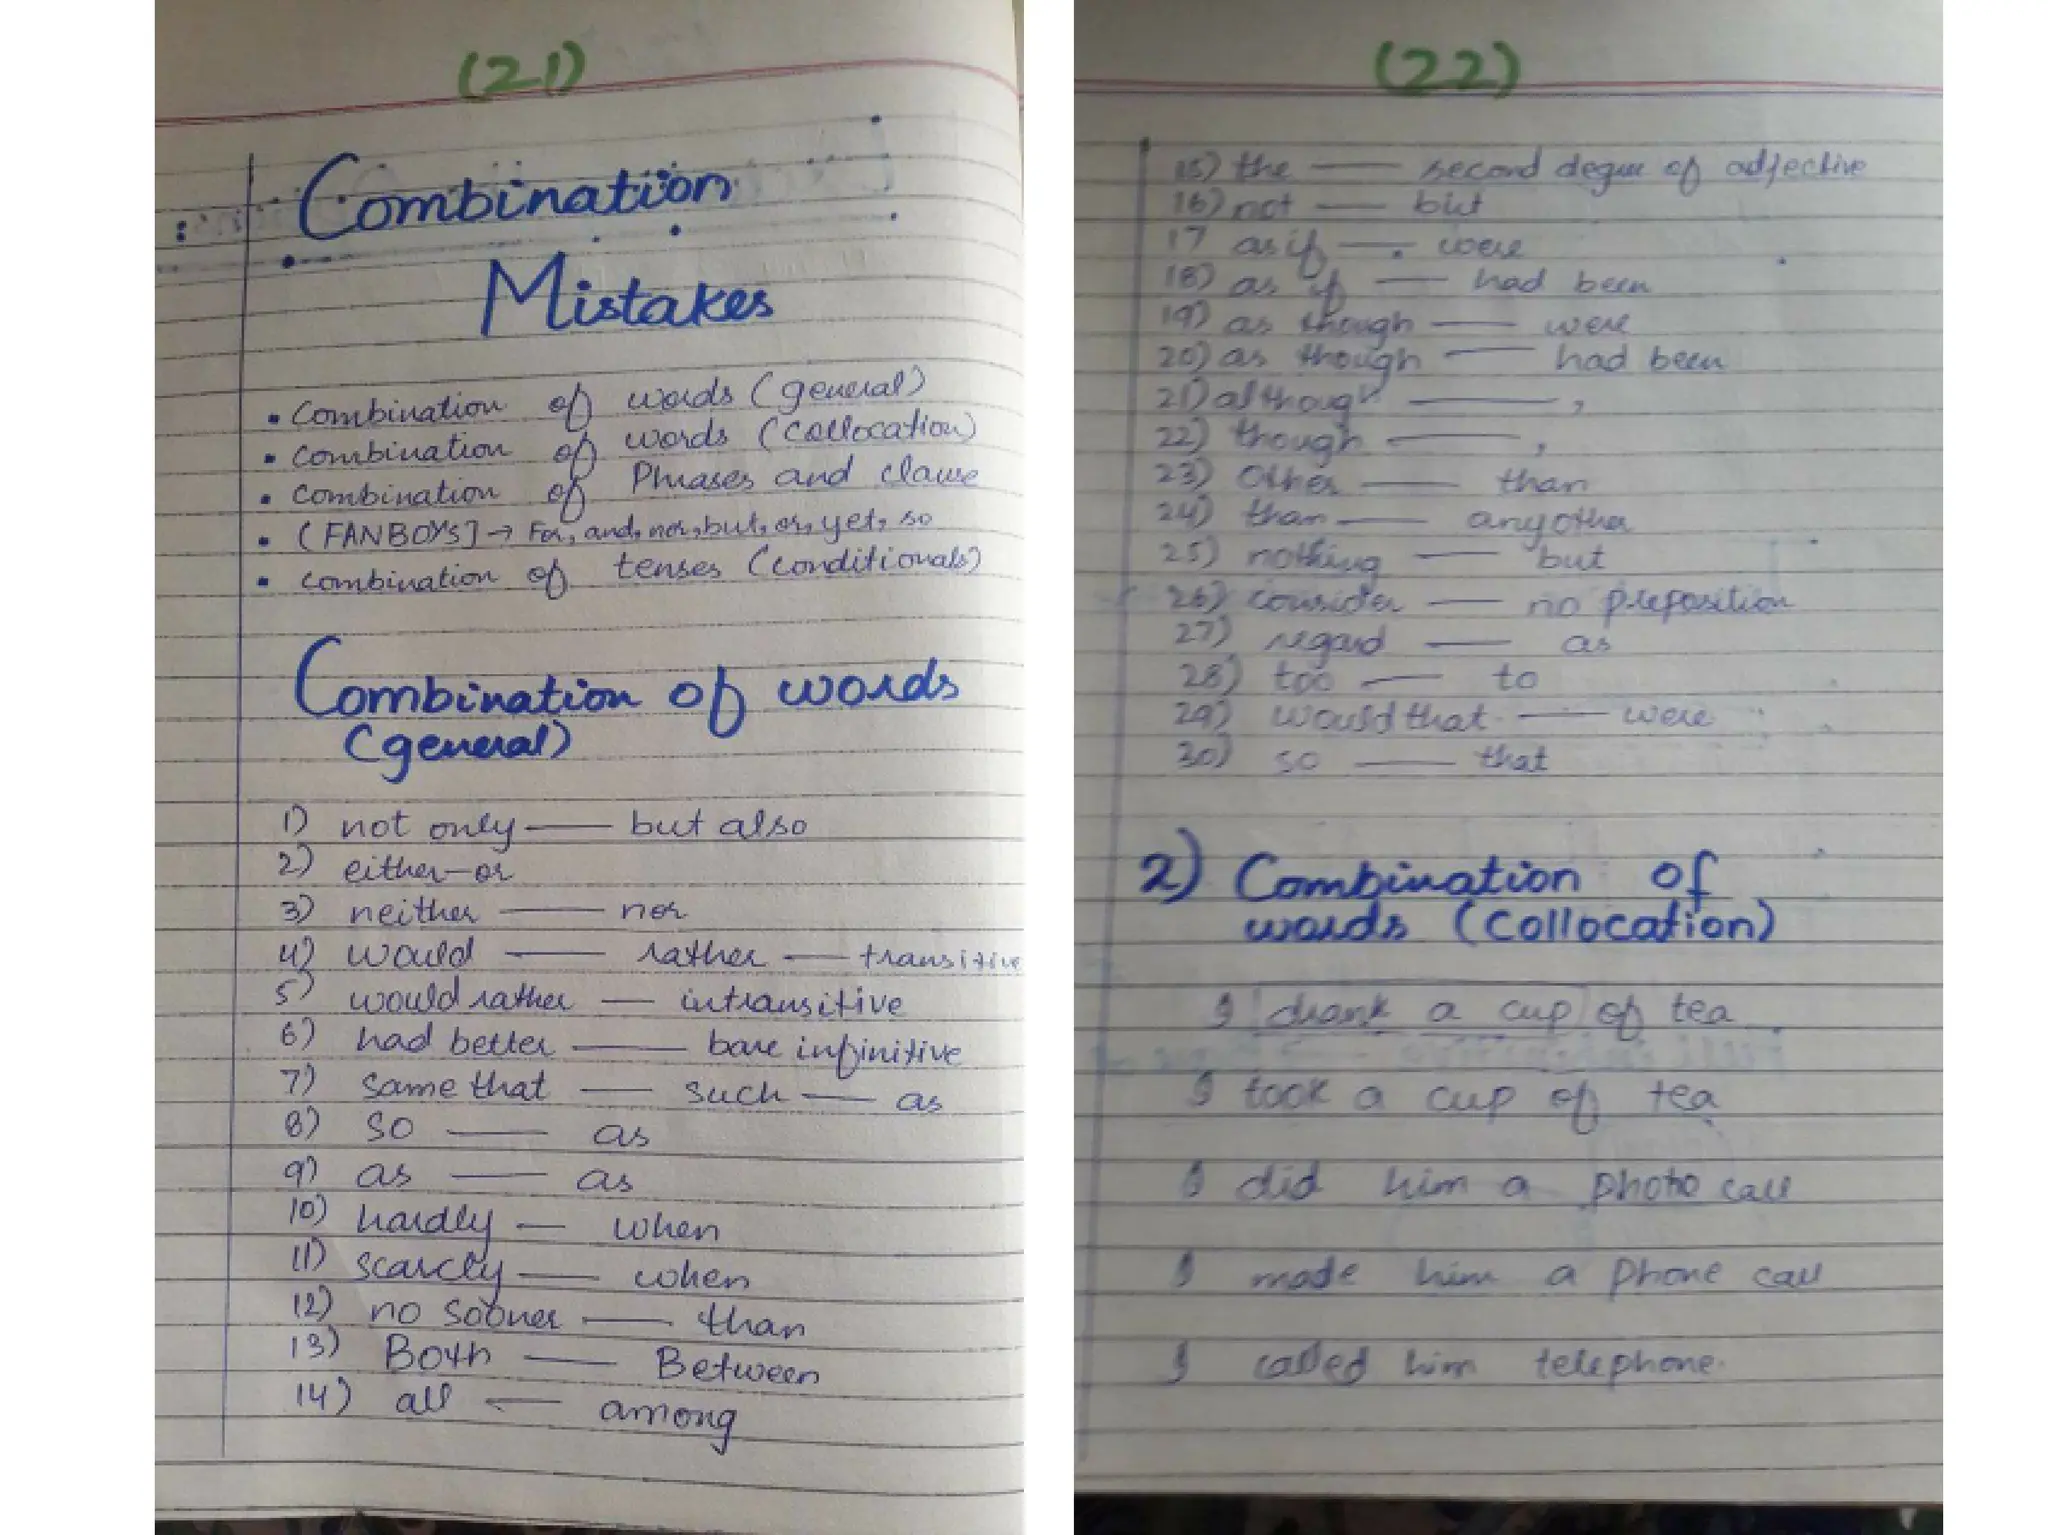 (21)
Combination
Mistakes
• Combination of words (general)
• Combination of words (collocation)
• Combination of Phrases and clause
• (FANBOYS] → For, and, nor, but, or, yet, so
• combination of tenses (conditionals)
Combination of words
(general)
1) not only — but also
2) either—or
3) neither — nor
4) would — rather — transitive
5) would rather — intransitive
6) had better — bare infinitive
7) same that — such — as
8) so — as
9) as — as
10) hardly — when
11) scarcely — when
12) no sooner — than
13) Both — Between
14) all — among
(22)
15) the — second degree of adjective
16) not — but
17 as if — were
18) as if — had been
19) as though — were
20) as though — had been
21) although — ,
22) though — ,
23) Other — than
24) than — any other
25) nothing — but
26) consider — no preposition
27) regard — as
28) too — to
29) would that — were
30) so — that
2) Combination of
words (Collocation)
I drank a cup of tea
I took a cup of tea
I did him a photo call
I made him a phone call
I called him telephone.